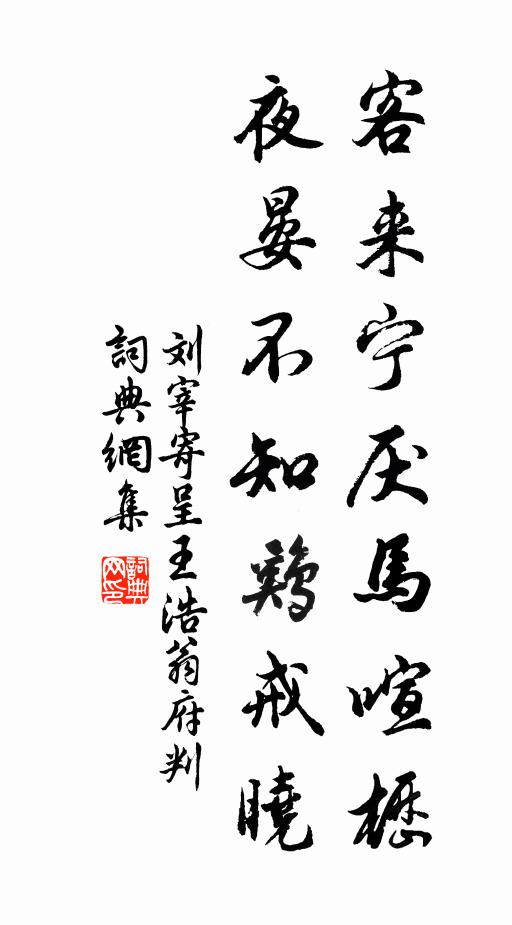 客来宁厌馬喧櫪
夜晏不知鷄戒曉
刘宰寄呈王浩翁府判
詞典網集
詞典网印